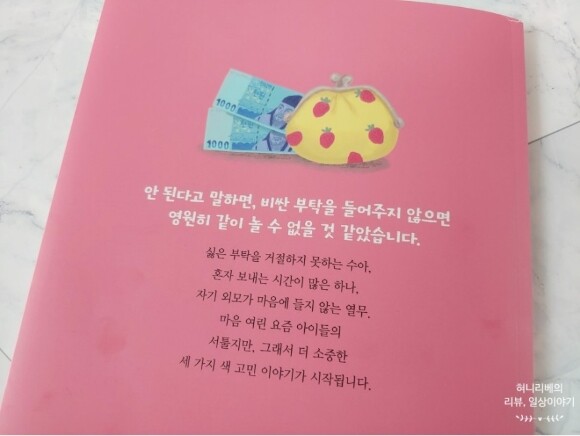 1000
1000
안 된다고 말하면, 비싼 부탁을 들어주지 않으면
영원히 같이 놀 수 없을 것 같았습니다.
싫은 부탁을 거절하지 못하는 수아,
혼자 보내는 시간이 많은 하나,
자기 외모가 마음에 들지 않는 열무.
마음 여린 요즘 아이들의
서툴지만, 그래서 더 소중한
세 가지 색 고민 이야기가 시작됩니다.
허니리베의
리뷰, 일상이야기